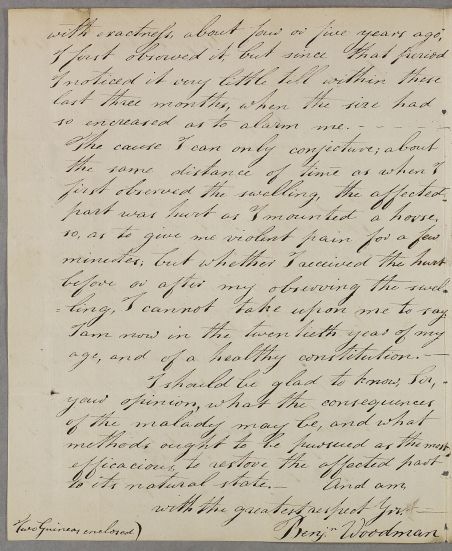 with exactness, about four or five years ago,
I first observed it but since that period
I noticed it very little till within these
last three months, when the size had
so encreased as to alarm me. - - - - -
The cause I can only conjecture; about
the same distance of time as when I
first observed the swelling, the affected
part was hurt as I mounted a horse,
so, as to give me violent pain for a few
minutes; but whether I received the hurt
before or after my observing the swel-
-ling, I cannot take upon me to say.
I am now in the twentieth year of my
age, and of a healthy constitution. -
I should be glad to know, Sir,
your opinion, what the consequences
of the malady may be, and what
methods ought to be pursued as the most
efficacious, to restore the affected part
to its natural state. - And am
with the greatest respect
Benjn Woodman
Two Guineas enclosed)